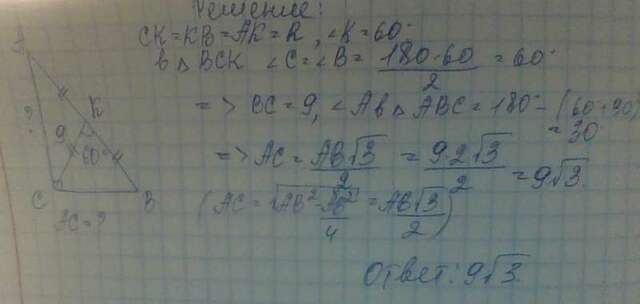 Решение:
CK=KB=AK=R, ∠K=60°
в △ BCK ∠C=∠B= (180-60)/2 = 60°
=> BC=9, ∠A в △ ABC=180°-(60+90)
=30
=> AC= AB√3/2 = 9·2√3/2 = 9√3
(AC=√(AB²-AB²/4) = AB√3/2)
Ответ: 9√3
A
?
K
9
60°
C
B
AC=?